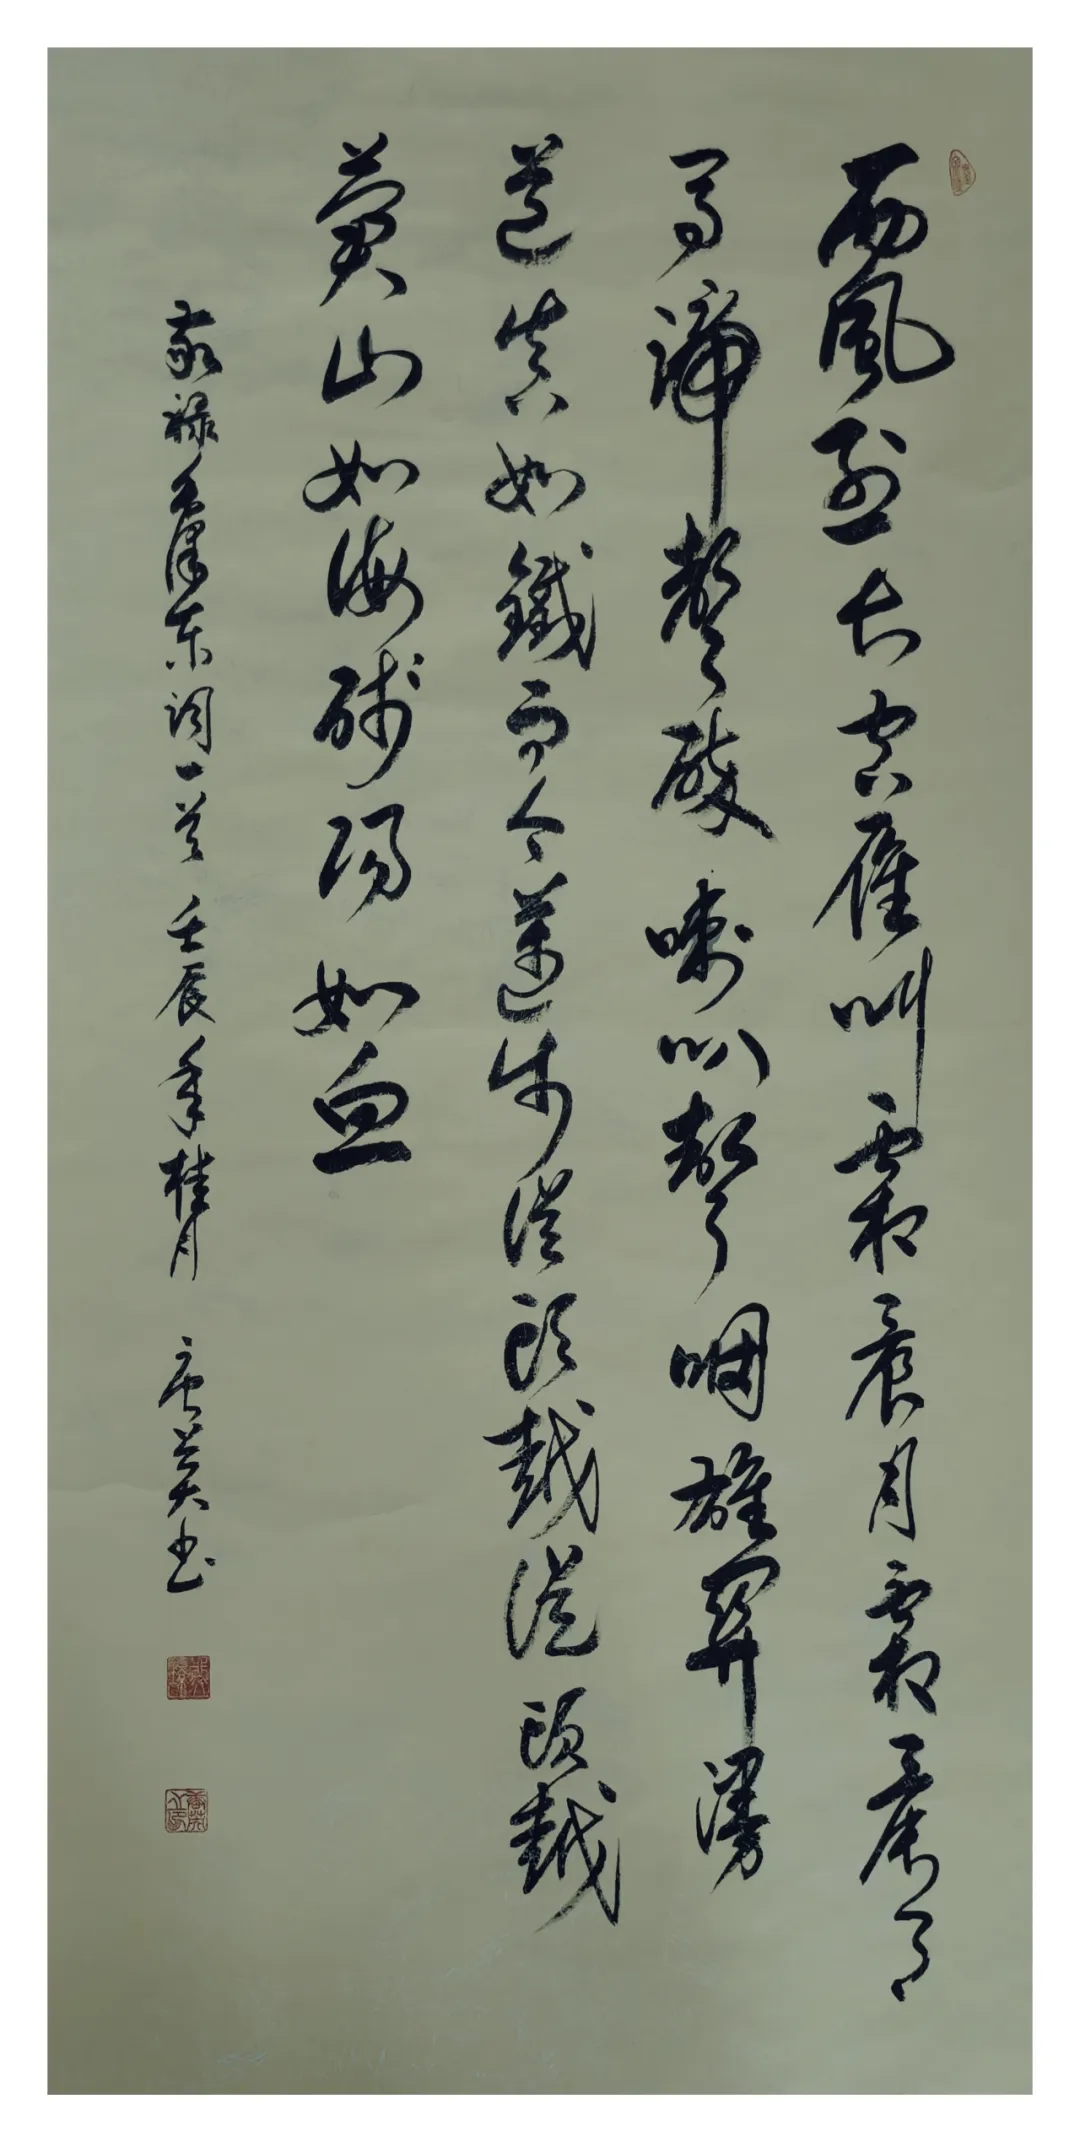 西風烈長空雁叫霜晨月霜晨月
馬蹄聲碎喇叭聲咽雄關漫
道真如鐵而今邁步從頭越從頭越
蒼山如海殘陽如血
敬録毛澤东詞一首 壬辰年桂月 唐英书